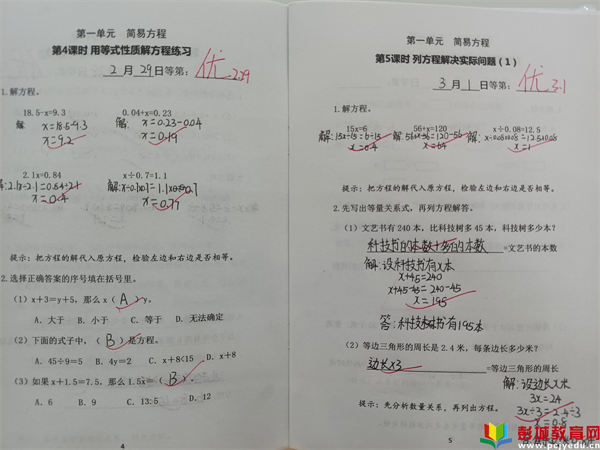 第一单元 简易方程
第4课时 用等式性质解方程练习
2月29日等第：优 2.29
1.解方程。
18.5-x=9.3 0.04+x=0.23
解: x=18.5-9.3 解: x=0.23-0.04
x=9.2 x=0.19
2.1x=0.84 x÷0.7=1.1
解:2.1x÷2.1=0.84÷2.1 解:x÷0.7×0.7=1.1×0.7
x=0.4 x=0.77
提示：把方程的解代入原方程，检验左边和右边是否相等。
2.选择正确答案的序号填在括号里。
（1）x+3=y+5，那么x（A）y。
A. 大于 B. 小于 C. 等于 D. 无法确定
（2）下面的式子中，（B）是方程。
A. 45÷9=5 B. 4y=2 C. x+8<15 D. x+8
（3）如果x+1.5=7.5，那么1.5x=（B）。
A. 6 B. 9 C. 13.5 D. 12
4
第一单元 简易方程
第5课时 列方程解决实际问题（1）
3月1日等第：优 3.1
1.解方程。
15x=6 56+x=120 x÷0.08=12.5
解:15x÷15=6÷15 解:56+x-56=120-56 解:x÷0.08×0.08=12.5×0.08
x=0.4 x=64 x=1
提示：把方程的解代入原方程，检验左边和右边是否相等。
2.先写出等量关系式，再列方程解答。
（1）文艺书有240本，比科技树多45本，科技树多少本？
科技书的本数+多的本数=文艺书的本数
解:设科技书有x本
x+45=240
x+45-45=240-45
x=195
答:科技书有195本
（2）等边三角形的周长是2.4米，每条边长多少米？
边长×3=等边三角形的周长
解:设边长x米
3x=2.4
3x÷3=2.4÷3
x=0.8
提示：先分析数量关系，再列出方程。
5
彭城教育网
www.pcjyw.com